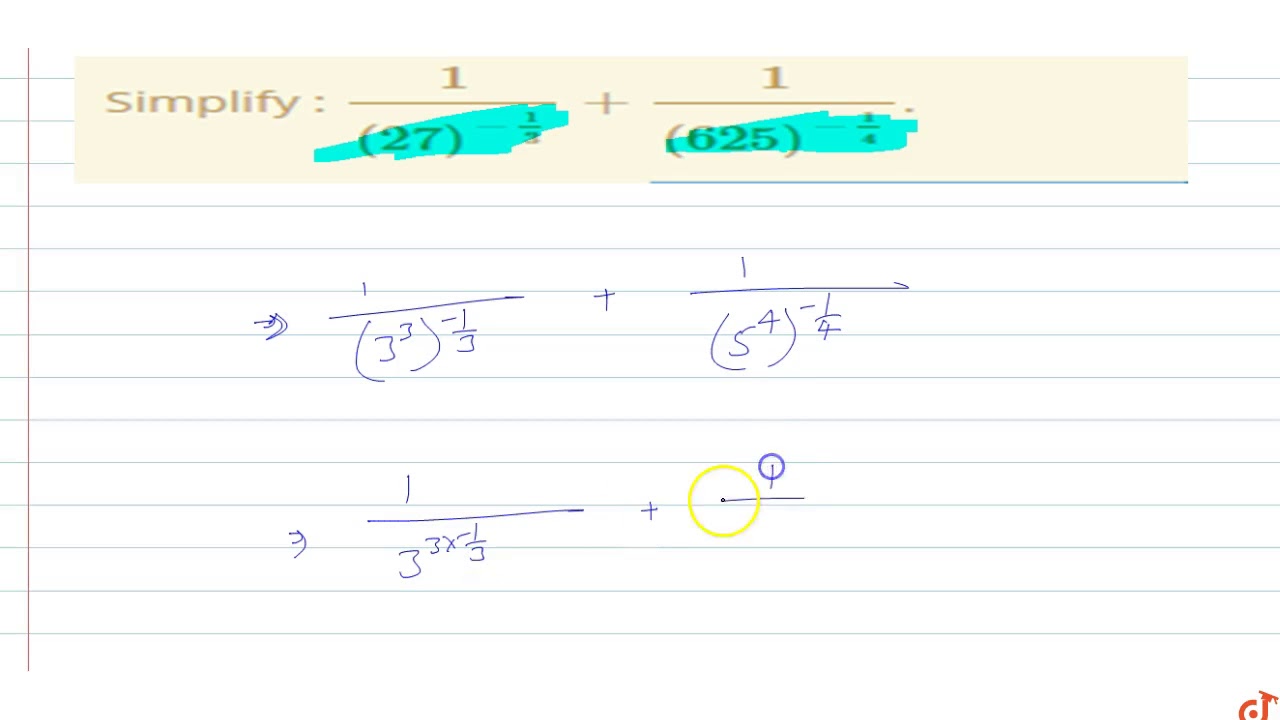 Simplify : 1/(27)^(-1/3) + 1/(625)^(-1/4).
⇒ 1/(3^3)^(-1/3) + 1/(5^4)^(-1/4)
⇒ 1/3^(3×-1/3) + 1/